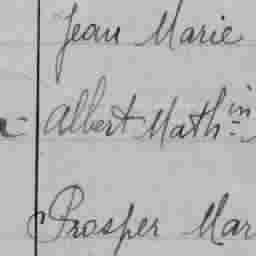 Jean Marie
Albert Math.in
Prosper Mar